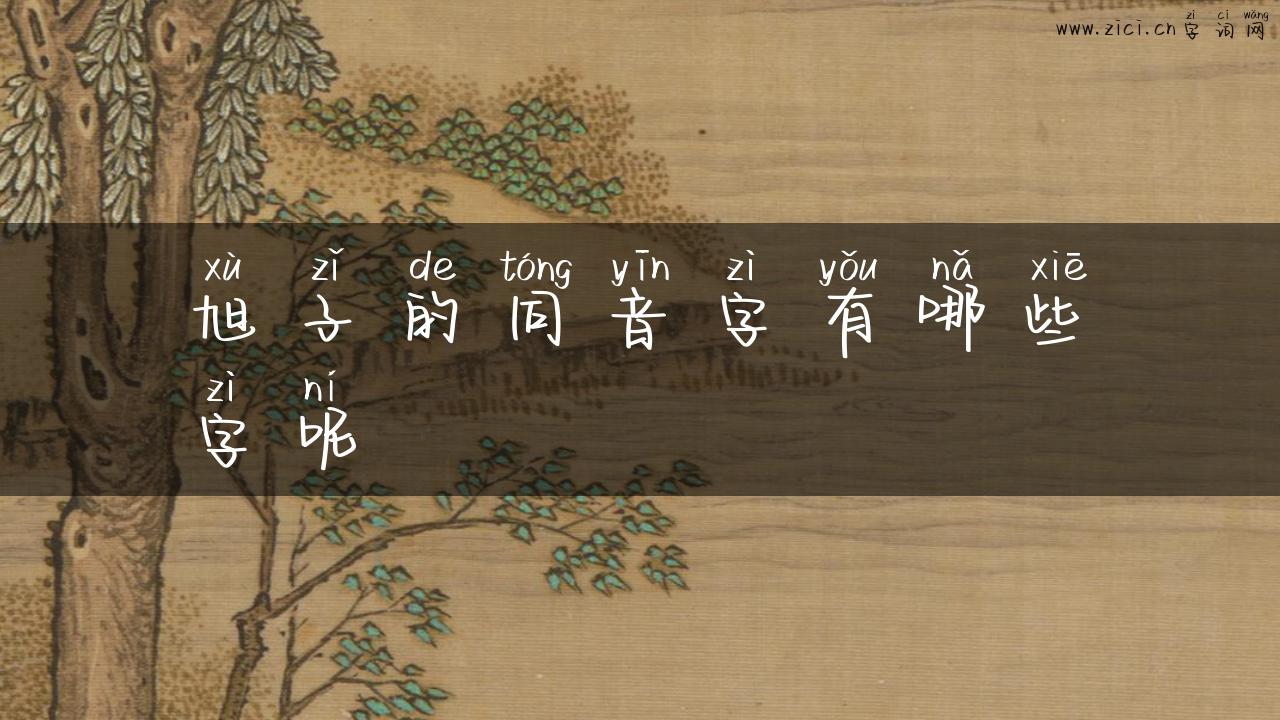 zì cí wǎng
www.zici.cn 字词网
xù zǐ de tóng yīn zì yǒu nǎ xiē
旭子的同音字有哪些
zì ní
字呢